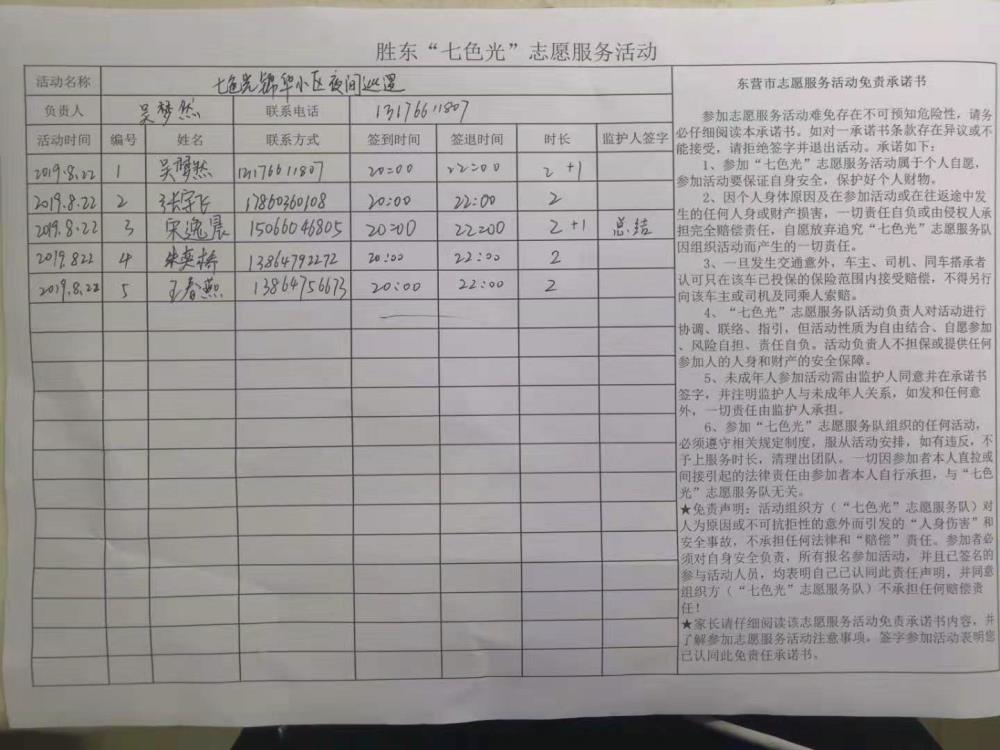 胜东“七色光”志愿服务活动
活动名称 七色光锦华小区夜间巡逻
负责人 吴梦然 联系电话 13176611807
活动时间 编号 姓名 联系方式 签到时间 签退时间 时长 监护人签字
2019.8.22 1 吴梦然 13176611807 20:00 22:00 2+1
2019.8.22 2 张宇飞 17860360108 20:00 22:00 2
2019.8.22 3 宋逸晨 15066046805 20:00 22:00 2+1 总结
2019.8.22 4 朱英桥 13864792272 20:00 22:00 2
2019.8.22 5 王春燕 13864756673 20:00 22:00 2
东营市志愿服务活动免责承诺书
参加志愿服务活动难免存在不可预知危险性，请务
必仔细阅读本承诺书。如对一承诺书条款存在异议或不
能接受，请拒绝签字并退出活动。承诺如下：
1、参加“七色光”志愿服务活动属于个人自愿，
参加活动要保证自身安全，保护好个人财物。
2、因个人身体原因及在参加活动或在往返途中发
生的任何人身或财产损害，一切责任自负或由侵权人承
担完全赔偿责任，自愿放弃追究“七色光”志愿服务队
因组织活动而产生的一切责任。
3、一旦发生交通意外，车主、司机、同车搭承者
认可只在该车已投保的保险范围内接受赔偿，不得另行
向该车主或司机及同乘人索赔。
4、“七色光”志愿服务队活动负责人对活动进行
协调、联络、指引，但活动性质为自由结合、自愿参加
、风险自担、责任自负。活动负责人不担保或提供任何
参加人的人身和财产的安全保障。
5、未成年人参加活动需由监护人同意并在承诺书
签字，并注明监护人与未成年人关系，如发和任何意
外，一切责任由监护人承担。
6、参加“七色光”志愿服务队组织的任何活动，
必须遵守相关规定制度，服从活动安排，如有违反，不
予上服务时长，清理出团队。一切因参加者本人直拉或
间接引起的法律责任由参加者本人自行承担，与“七色
光”志愿服务队无关。
★免责声明：活动组织方（“七色光”志愿服务队）对
人为原因或不可抗拒性的意外而引发的“人身伤害”和
安全事故，不承担任何法律和“赔偿”责任。参加者必
须对自身安全负责，所有报名参加活动，并且已签名的
参与活动人员，均表明自己已认同此责任声明，并同意
组织方（“七色光”志愿服务队）不承担任何赔偿责
任！
★家长请仔细阅读该志愿服务活动免责承诺书内容，并
了解参加志愿服务活动注意事项，签字参加活动表明您
已认同此免责任承诺书。